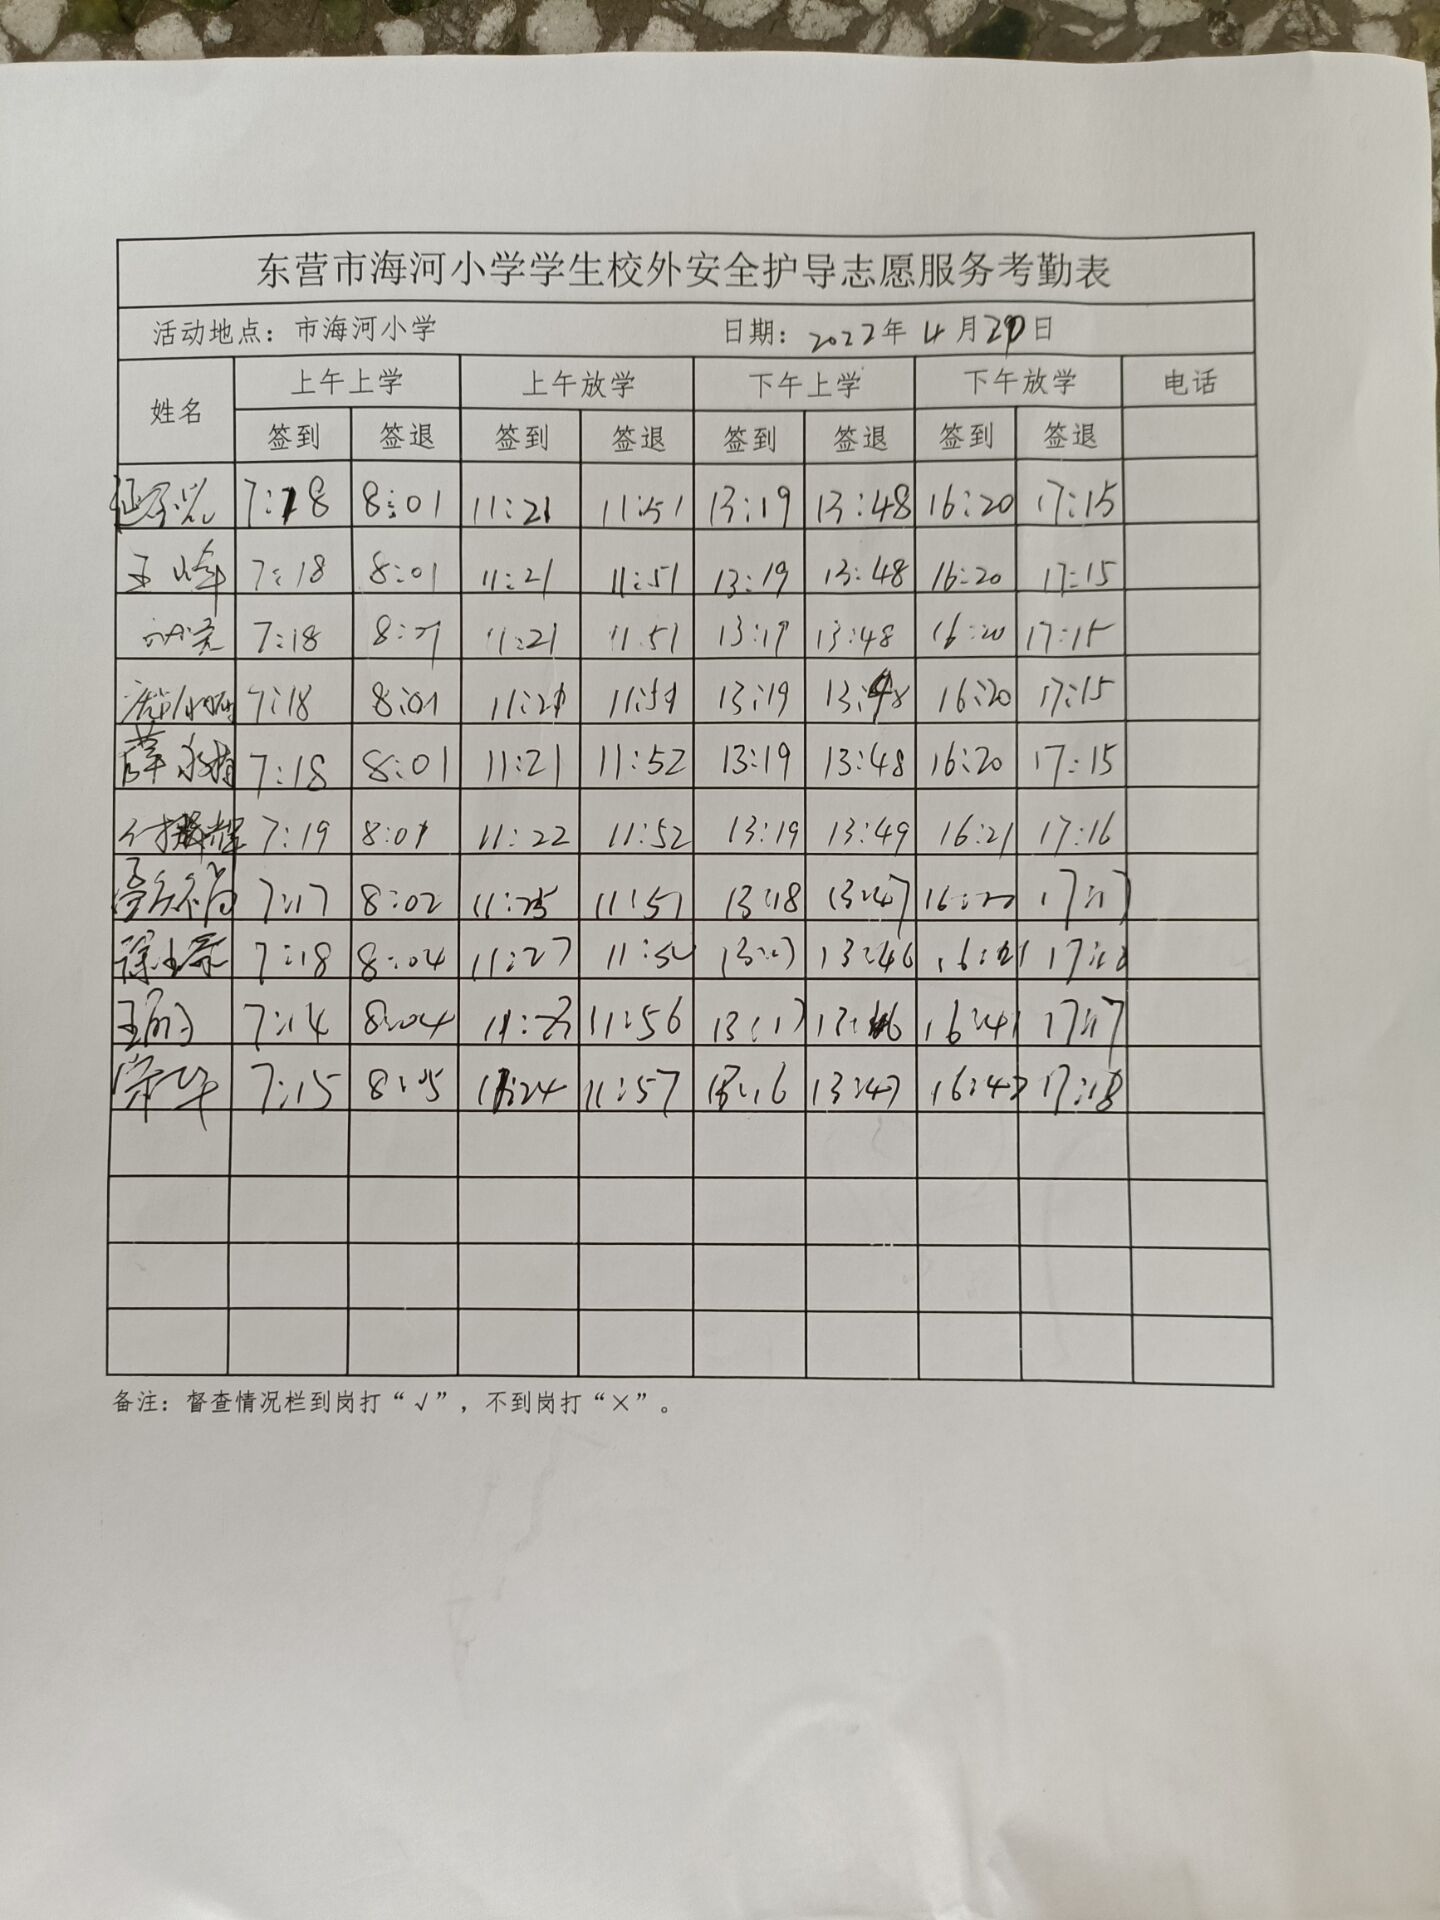 东营市海河小学学生校外安全护导志愿服务考勤表
活动地点：市海河小学 日期：2022年4月 日
姓名 上午上学 上午放学 下午上学 下午放学 电话
签到 签退 签到 签退 签到 签退 签到 签退
7:18 8:01 11:21 11:51 13:19 13:48 16:20 17:15
王峰 7:18 8:01 11:21 11:51 13:19 13:48 16:20 17:15
7:18 11:21 11:51 13:19 13:48 16:20 17:15
7:18 8:01 11:21 11:51 13:19 13:48 16:20 17:15
薛 7:18 8:01 11:21 11:52 13:19 13:48 16:20 17:15
7:19 8:01 11:22 11:52 13:19 13:49 16:21 17:16
7:17 8:02 11:25 11:51 13:18 13:47 17:17
7:18 8:04 11:27 13:17 13:46
7:14 8:04 11:56 13:17 16:41 17:17
7:15 8:05 11:24 11:57 13:16 13:47 17:18
备注：督查情况栏到岗打“√”，不到岗打“×”。